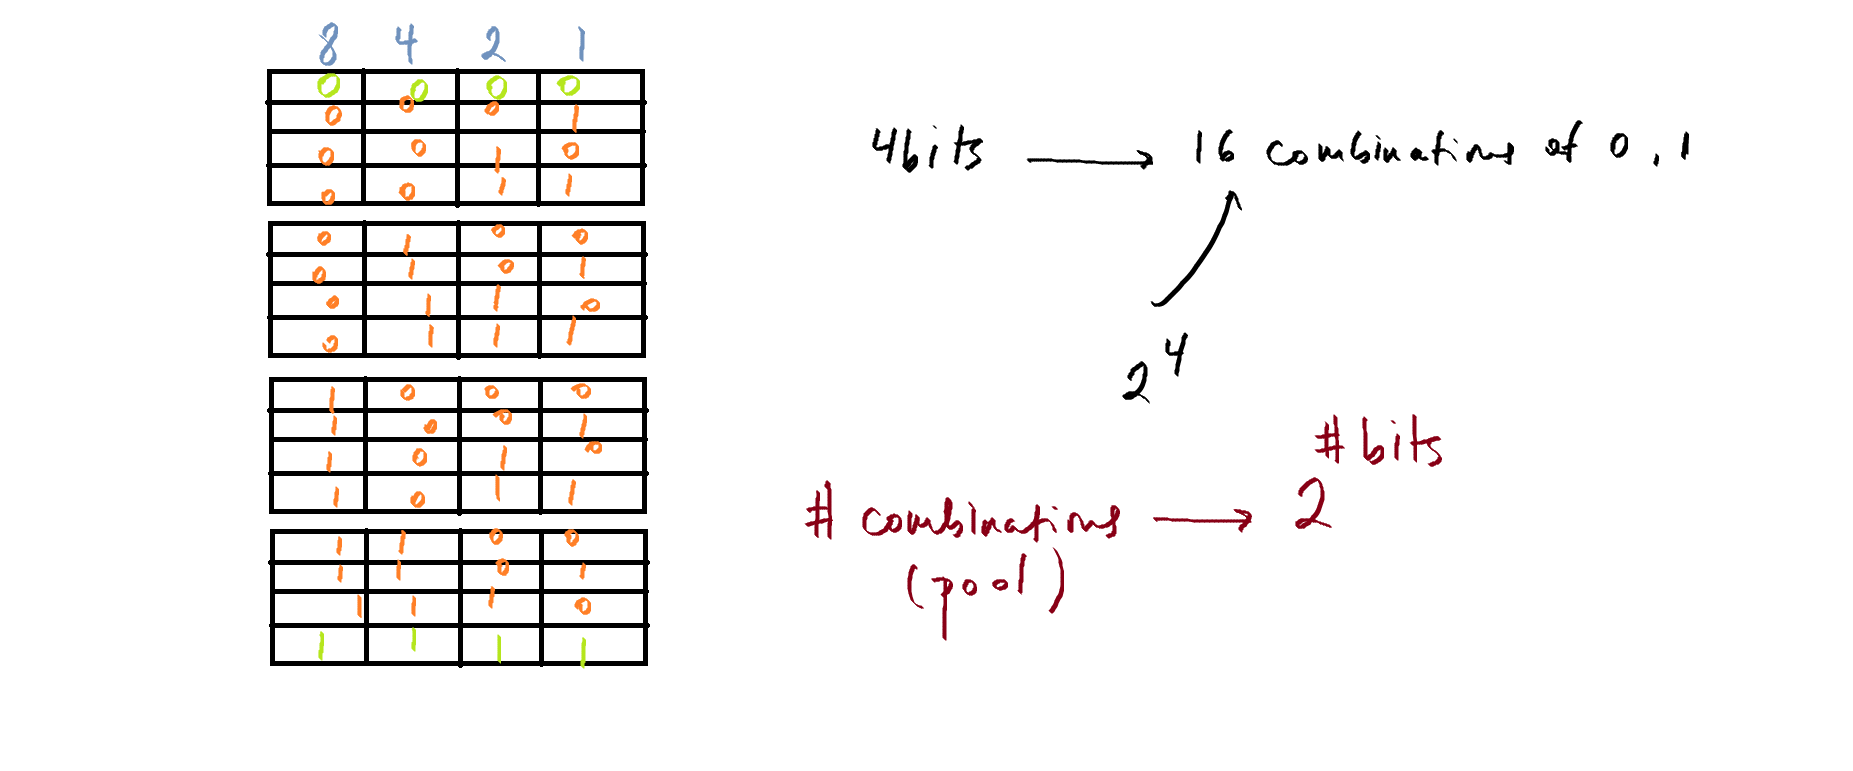 8 4 2 1
0 0 0 0
0 0 0 1
0 0 1 0
0 0 1 1
0 1 0 0
0 1 0 1
0 1 1 0
0 1 1 1
1 0 0 0
1 0 0 1
1 0 1 0
1 0 1 1
1 1 0 0
1 1 0 1
1 1 1 0
1 1 1 1
4bits → 16 combinations of 0, 1
2⁴
# combinations → 2^# bits
(pool)